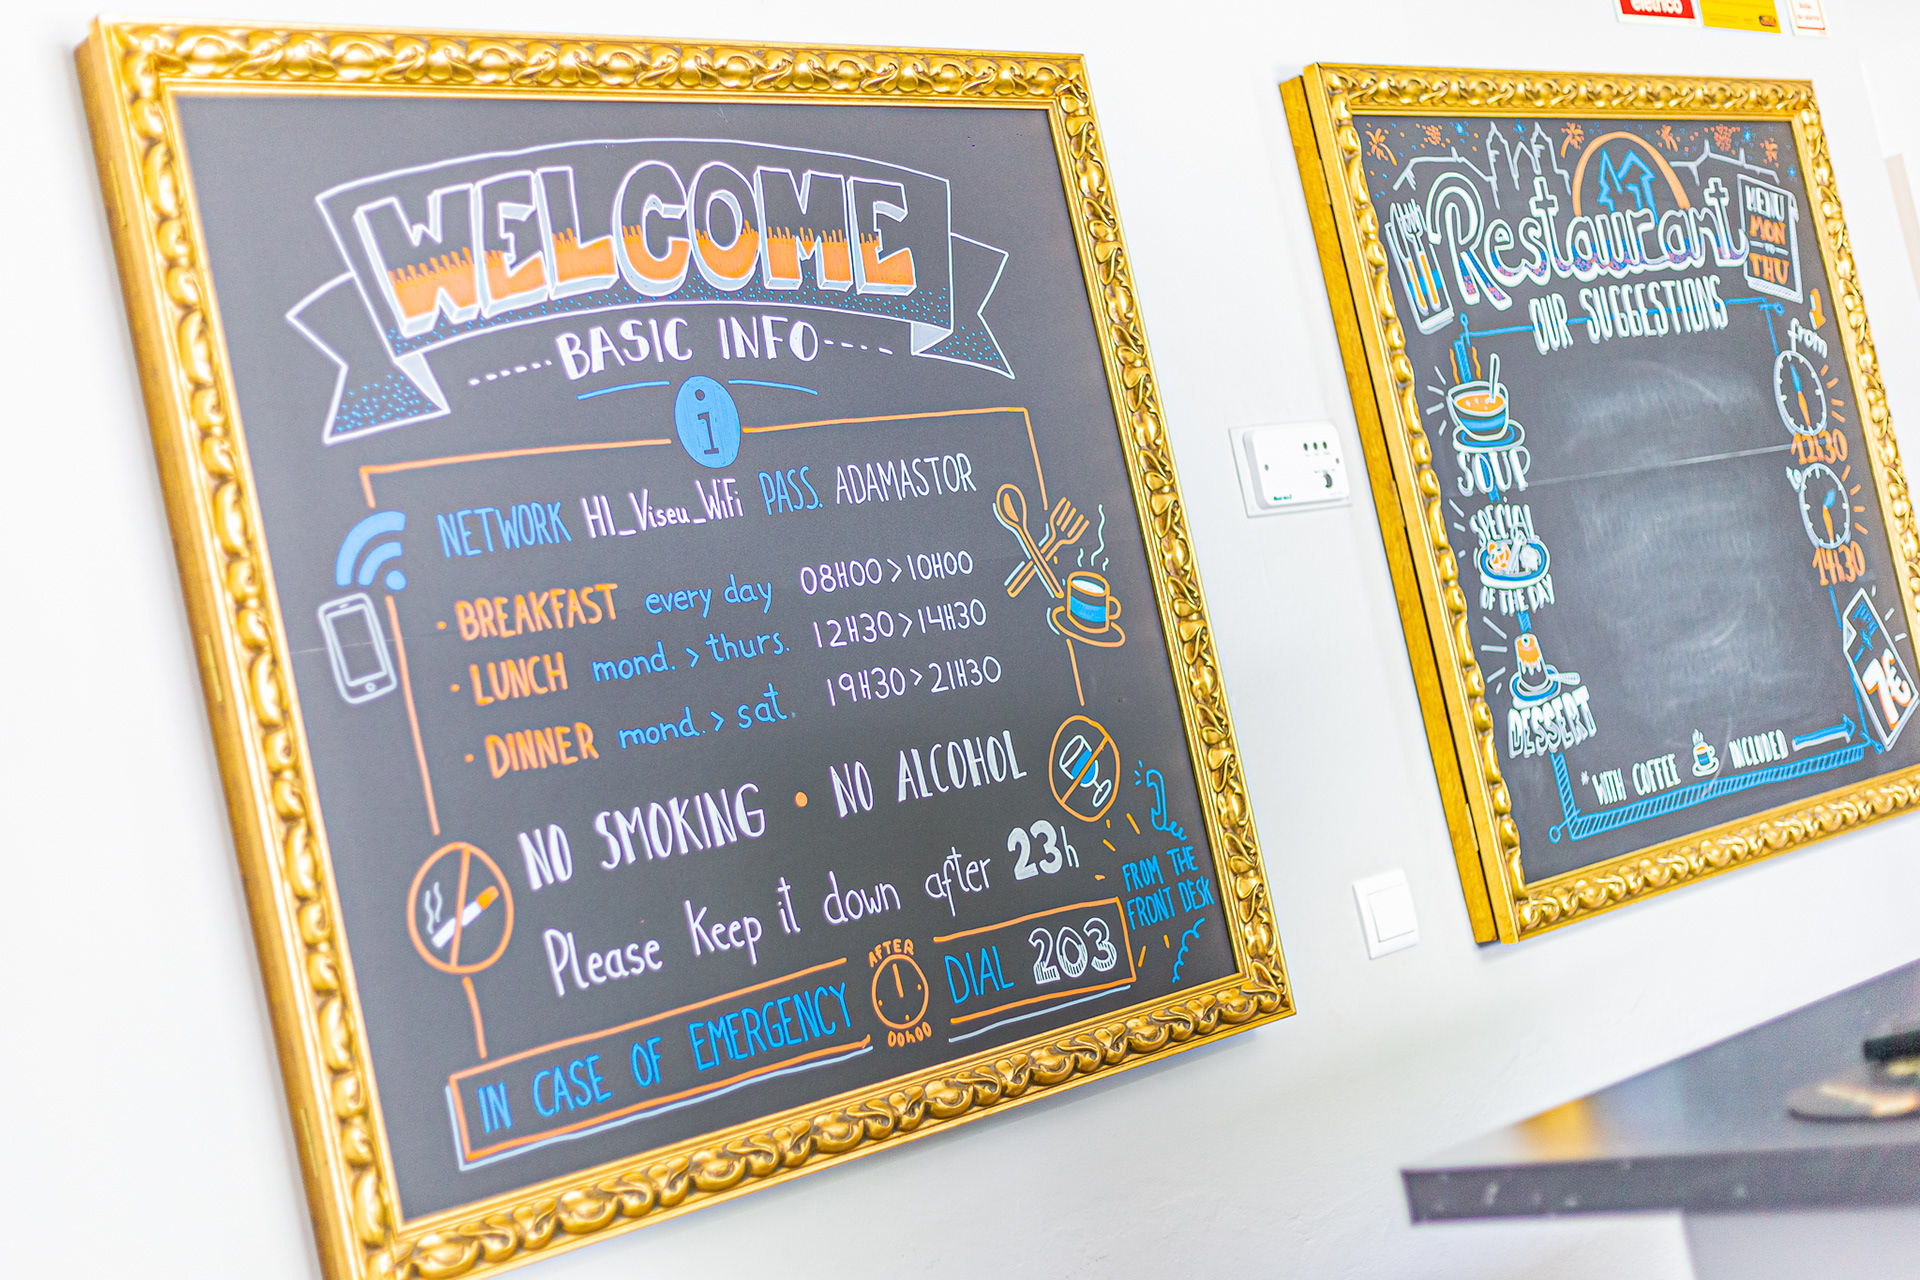 WELCOME
BASIC INFO
i
NETWORK HI_Viseu_WiFi PASS. ADAMASTOR
· BREAKFAST every day 08H00 > 10H00
· LUNCH mond. > thurs. 12H30 > 14H30
· DINNER mond. > sat. 19H30 > 21H30
NO SMOKING • NO ALCOHOL
Please Keep it down after 23h
IN CASE OF EMERGENCY
AFTER
00h00
DIAL 203
FROM THE
FRONT DESK
elétrico
Restaurant
MENU
MON
TO
THU
OUR SUGGESTIONS
from
12h30
to
14H30
SOUP
SPECIAL
OF THE DAY
DESSERT
7€
*WITH COFFEE INCLUDED